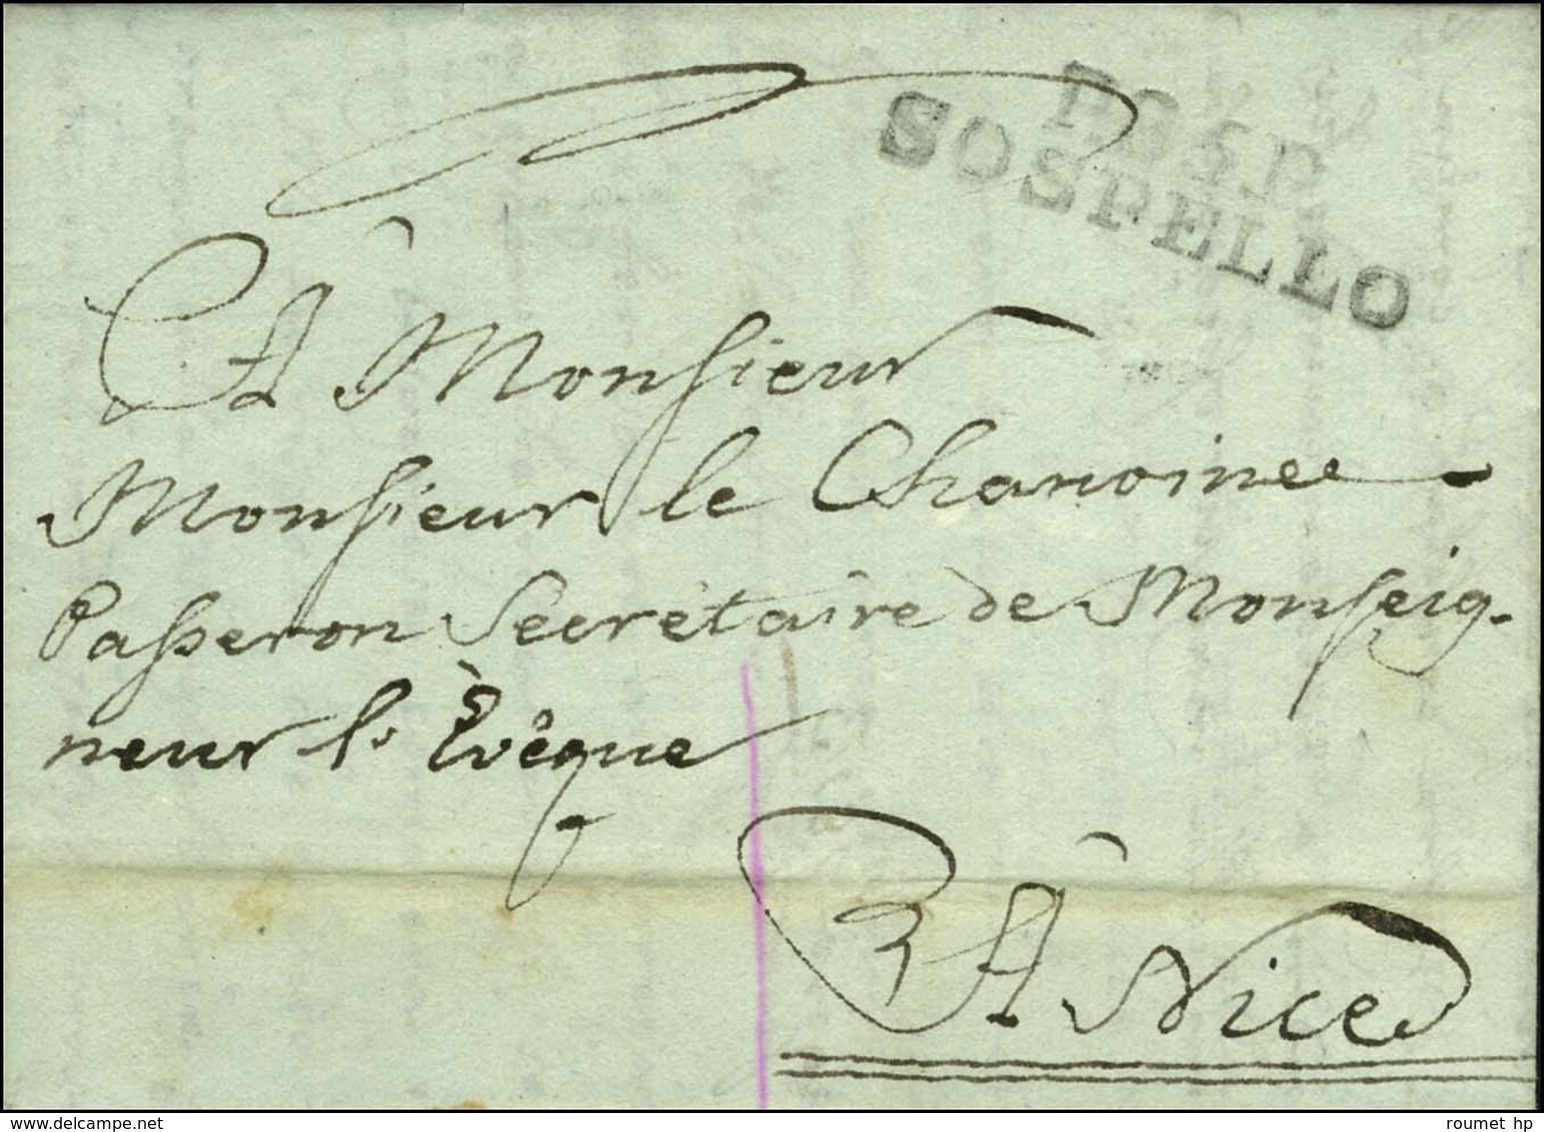 P.85.P.
SOSPELLO
À Monsieur
Monsieur le Chanoinee
Passeron Secrétaire de Monseig-
neur l'Evêque
À Nice
delcampe.net
roumet hp